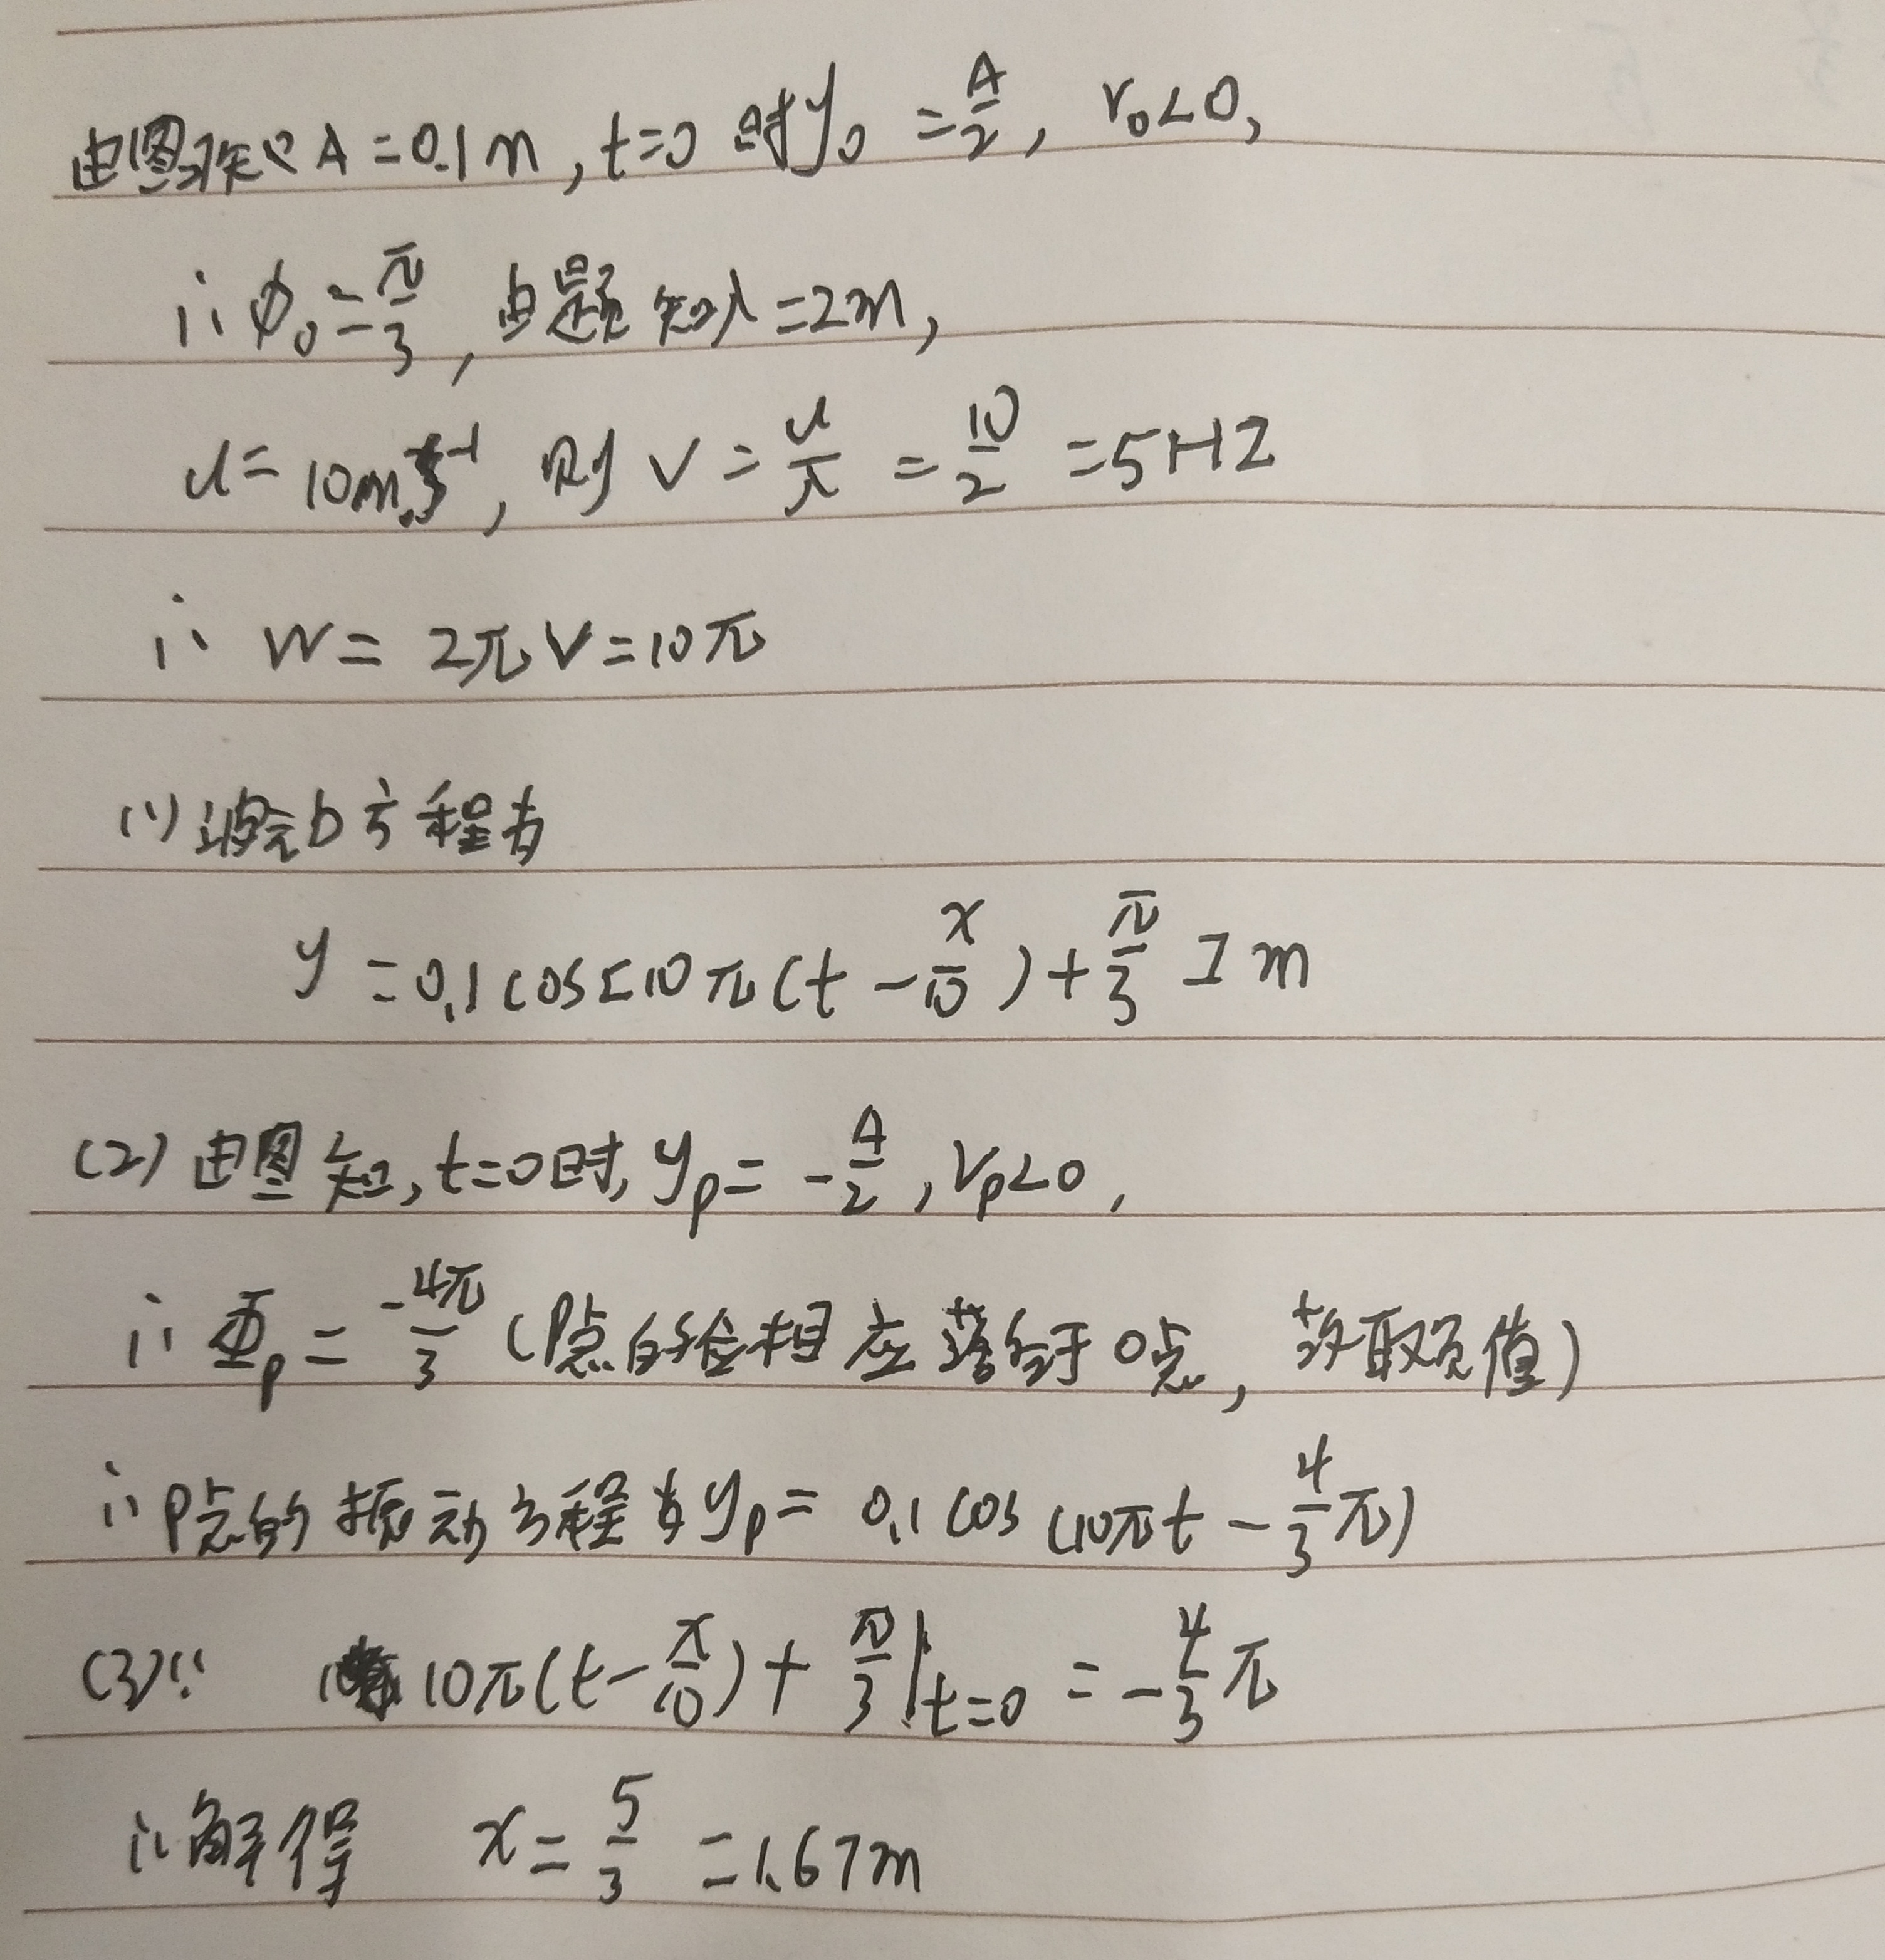 由图可知 A=0.1m,t=0时y₀=A/2, v₀<0,
∴ϕ₀=π/3,由题知λ=2m,
u=10m·s⁻¹,则ν=u/λ=10/2=5HZ
∴ w=2πν=10π
(1)波动方程为
y=0.1cos[10π(t-x/10)+π/3]m
(2)由图知,t=0时,yₚ=-A/2,vₚ<0,
∴Φₚ=-4π/3(P点的位相应落后于0点,故取负值)
∴P点的振动方程为yₚ=0.1cos(10πt-4/3π)
(3)∵ 10π(t-x/10)+π/3|t=0=-4/3π
∴解得 x=5/3=1.67m